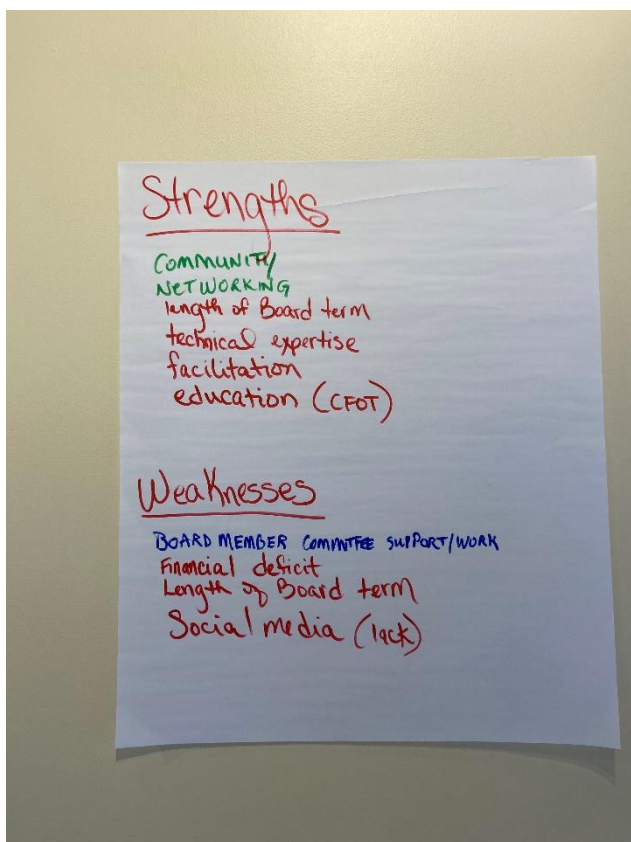 Strengths
COMMUNITY/
NETWORKING
length of Board term
technical expertise
facilitation
education (CFOT)
Weaknesses
BOARD MEMBER COMMITTEE SUPPORT/WORK
Financial deficit
Length of Board term
Social media (lack)